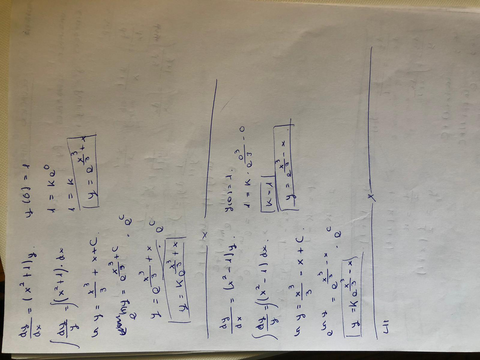 dy/dx = (x²+1)y.
∫ dy/y = ∫(x²+1).dx
ln y = x³/3 + x + C.
y = e^(x³/3 + x) . e^C
y = K e^(x³/3 + x)
y(0) = 1
1 = K e⁰
1 = K
y = e^(x³/3 + x)
x
dy/dx = (x²-1)y.
∫ dy/y = ∫(x²-1) dx.
ln y = x³/3 - x + C.
e^ln y = e^(x³/3 - x) . e^C
y = K e^(x³/3 - x)
y(0) = 1.
1 = K . e^(0³/3 - 0)
K = 1
y = e^(x³/3 - x)
x